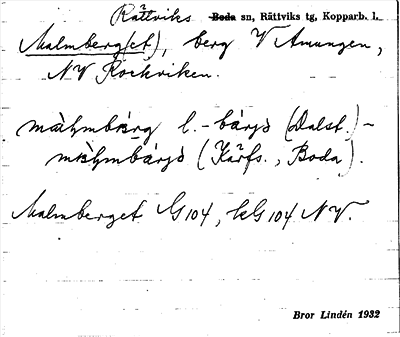 Rättviks Boda sn, Rättviks tg, Kopparb. l.
Malmberg(et), berg V Amungen,
NV Rockviken.
màlmbärg l. -bärgə (Dalst.) -
màlmbärgə (Kärfs., Boda).
Malmberget G 104, kG 104 NV.
Bror Lindén 1932